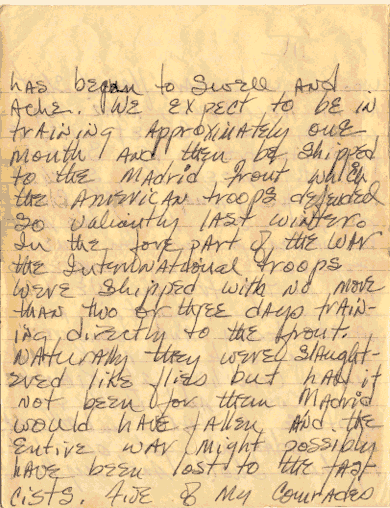 has began to swell and
ache. We expect to be in
training approximately one
month and then be shipped
to the Madrid front which
the American troops defended
so valiantly last winter.
In the fore part of the war
the International troops
were shipped with no more
than two or three days train-
ing directly to the front.
Naturally they were slaught-
ered like flies but had it
not been for them Madrid
would have fallen and the
entire war might possibly
have been lost to the fas-
cists. Five of my comrades